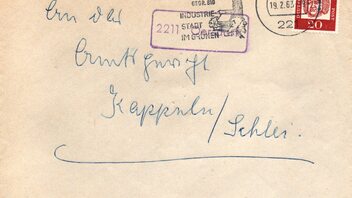 An das
Amtsgericht
Kappeln/Schlei.
GEGR. 1910
INDUSTRIE
STADT
IM GRÜNEN
2211
19.2.63
22
20